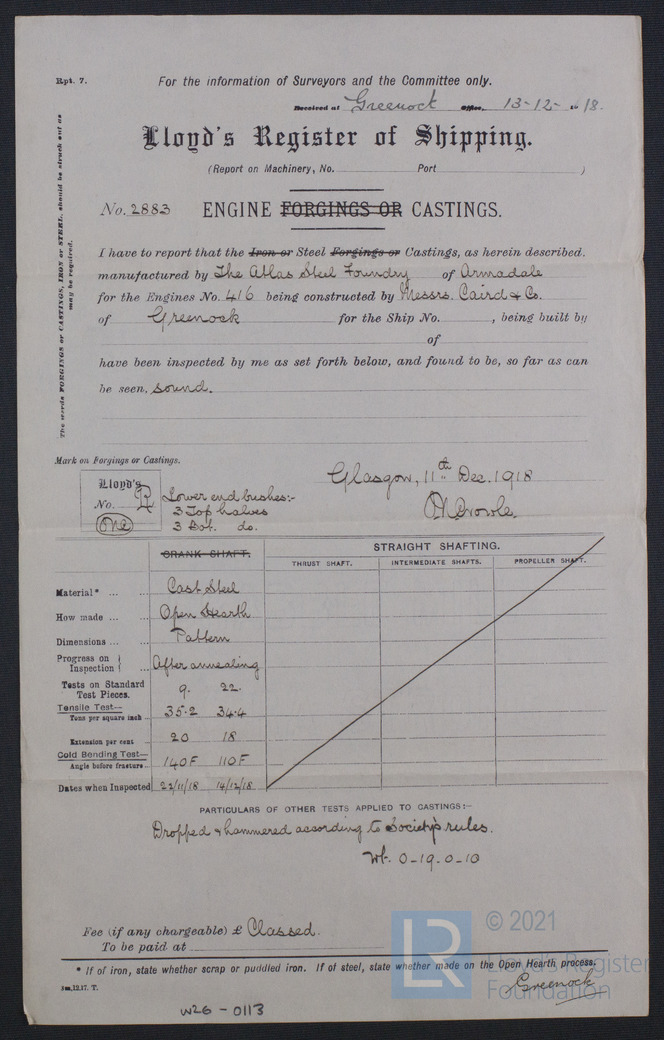 Rpt. 7.
For the information of Surveyors and the Committee only.
Received at Greenock Office. 13-12- 1918.
Lloyd's Register of Shipping.
(Report on Machinery, No. Port )
No. 2883 ENGINE FORGINGS OR CASTINGS.
The words FORGINGS or CASTINGS, IRON or STEEL, should be struck out as may be required.
I have to report that the Iron or Steel Forgings or Castings, as herein described,
manufactured by The Atlas Steel Foundry of Armadale
for the Engines No. 416 being constructed by Messrs. Caird & Co.
of Greenock for the Ship No. , being built by
of
have been inspected by me as set forth below, and found to be, so far as can
be seen, sound.
Mark on Forgings or Castings.
Glasgow, 11th Dec. 1918
Lloyd's
No.
One
Lower end bushes:-
3 Top halves
3 Bot. do.
CRANK SHAFT.
STRAIGHT SHAFTING.
THRUST SHAFT. INTERMEDIATE SHAFTS. PROPELLER SHAFT.
Material* Cast Steel
How made Open Hearth
Dimensions Pattern
Progress on Inspection After annealing
Tests on Standard Test Pieces. 9. 22.
Tensile Test— Tons per square inch 35.2 34.4
Extension per cent 20 18
Cold Bending Test— Angle before fracture 140F 110F
Dates when Inspected 22/11/18 14/12/18
PARTICULARS OF OTHER TESTS APPLIED TO CASTINGS:—
Dropped & hammered according to Society's rules.
Wt. 0-19-0-10
Fee (if any chargeable) £ Classed.
To be paid at
* If of iron, state whether scrap or puddled iron. If of steel, state whether made on the Open Hearth process.
Greenock
W26-0113
LR
© 2021
Lloyd's Register
Foundation